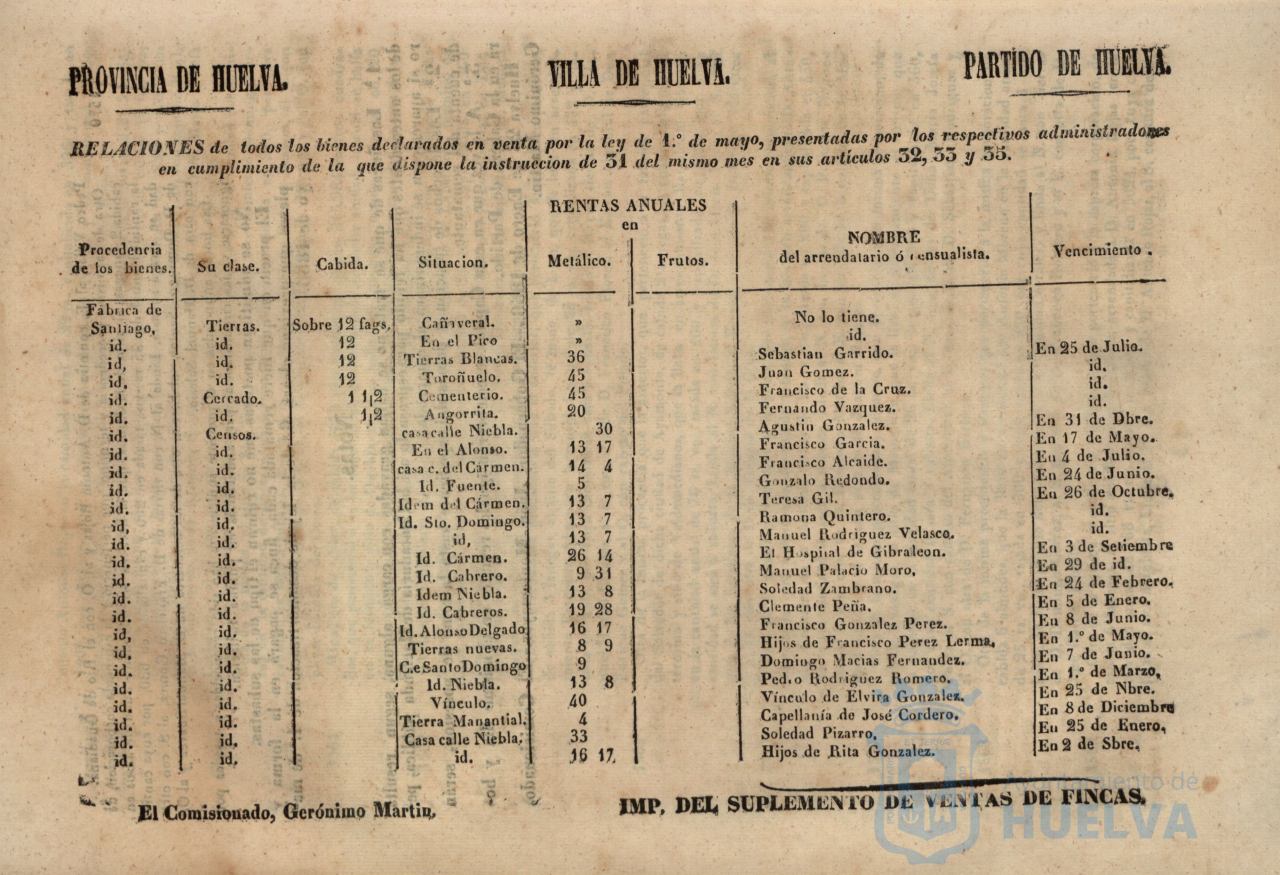 PROVINCIA DE HUELVA. VILLA DE HUELVA. PARTIDO DE HUELVA.
RELACIONES de todos los bienes declarados en venta por la ley de 1.º de mayo, presentadas por los respectivos administradores
en cumplimiento de la que dispone la instruccion de 31 del mismo mes en sus artículos 32, 33 y 35.
RENTAS ANUALES
en
Procedencia de los bienes. Su clase. Cabida. Situacion. Metálico. Frutos. NOMBRE del arrendatario ó censualista. Vencimiento.
Fábrica de
Santiago, Tierras. Sobre 12 fags. Cañaveral. » No lo tiene.
id. id. 12 En el Pico » id.
id, id. 12 Tierras Blancas. 36 Sebastian Garrido. En 25 de Julio.
id. id. 12 Toroñuelo. 45 Juan Gomez. id.
id. Cercado. 1 1|2 Cementerio. 45 Francisco de la Cruz. id.
id. id. 1|2 Angorrita. 20 Fernando Vazquez. id.
id. Censos. casa calle Niebla. 30 Agustin Gonzalez. En 31 de Dbre.
id. id. En el Alonso. 13 17 Francisco Garcia. En 17 de Mayo.
id. id. casa c. del Cármen. 14 4 Francisco Alcaide. En 4 de Julio.
id. id. Id. Fuente. 5 Gonzalo Redondo. En 24 de Junio.
id. id. Idem del Cármen. 13 7 Teresa Gil. En 26 de Octubre.
id, id. Id. Sto. Domingo. 13 7 Ramona Quintero. id.
id. id. id, 13 7 Manuel Rodriguez Velasco. id.
id. id. Id. Cármen. 26 14 El Hospital de Gibraleon. En 3 de Setiembre
id. id. Id. Cabrero. 9 31 Manuel Palacio Moro, En 29 de id.
id. id. Idem Niebla. 13 8 Soledad Zambrano. En 24 de Febrero.
id. id. Id. Cabreros. 19 28 Clemente Peña. En 5 de Enero.
id, id. Id. Alonso Delgado 16 17 Francisco Gonzalez Perez. En 8 de Junio.
id, id. Tierras nuevas. 8 9 Hijos de Francisco Perez Lerma. En 1.º de Mayo.
id. id. C.e Santo Domingo 9 Domingo Macias Fernandez. En 7 de Junio.
id. id. Id. Niebla. 13 8 Pedro Rodriguez Romero. En 1.º de Marzo,
id. id. Vínculo. 40 Vínculo de Elvira Gonzalez. En 25 de Nbre.
id. id. Tierra Manantial. 4 Capellanía de José Cordero. En 8 de Diciembre
id. id. Casa calle Niebla. 33 Soledad Pizarro, En 25 de Enero,
id. id. id. 16 17. Hijos de Rita Gonzalez. En 2 de Sbre.
El Comisionado, Gerónimo Martin. IMP. DEL SUPLEMENTO DE VENTAS DE FINCAS.
Ayuntamiento de
HUELVA